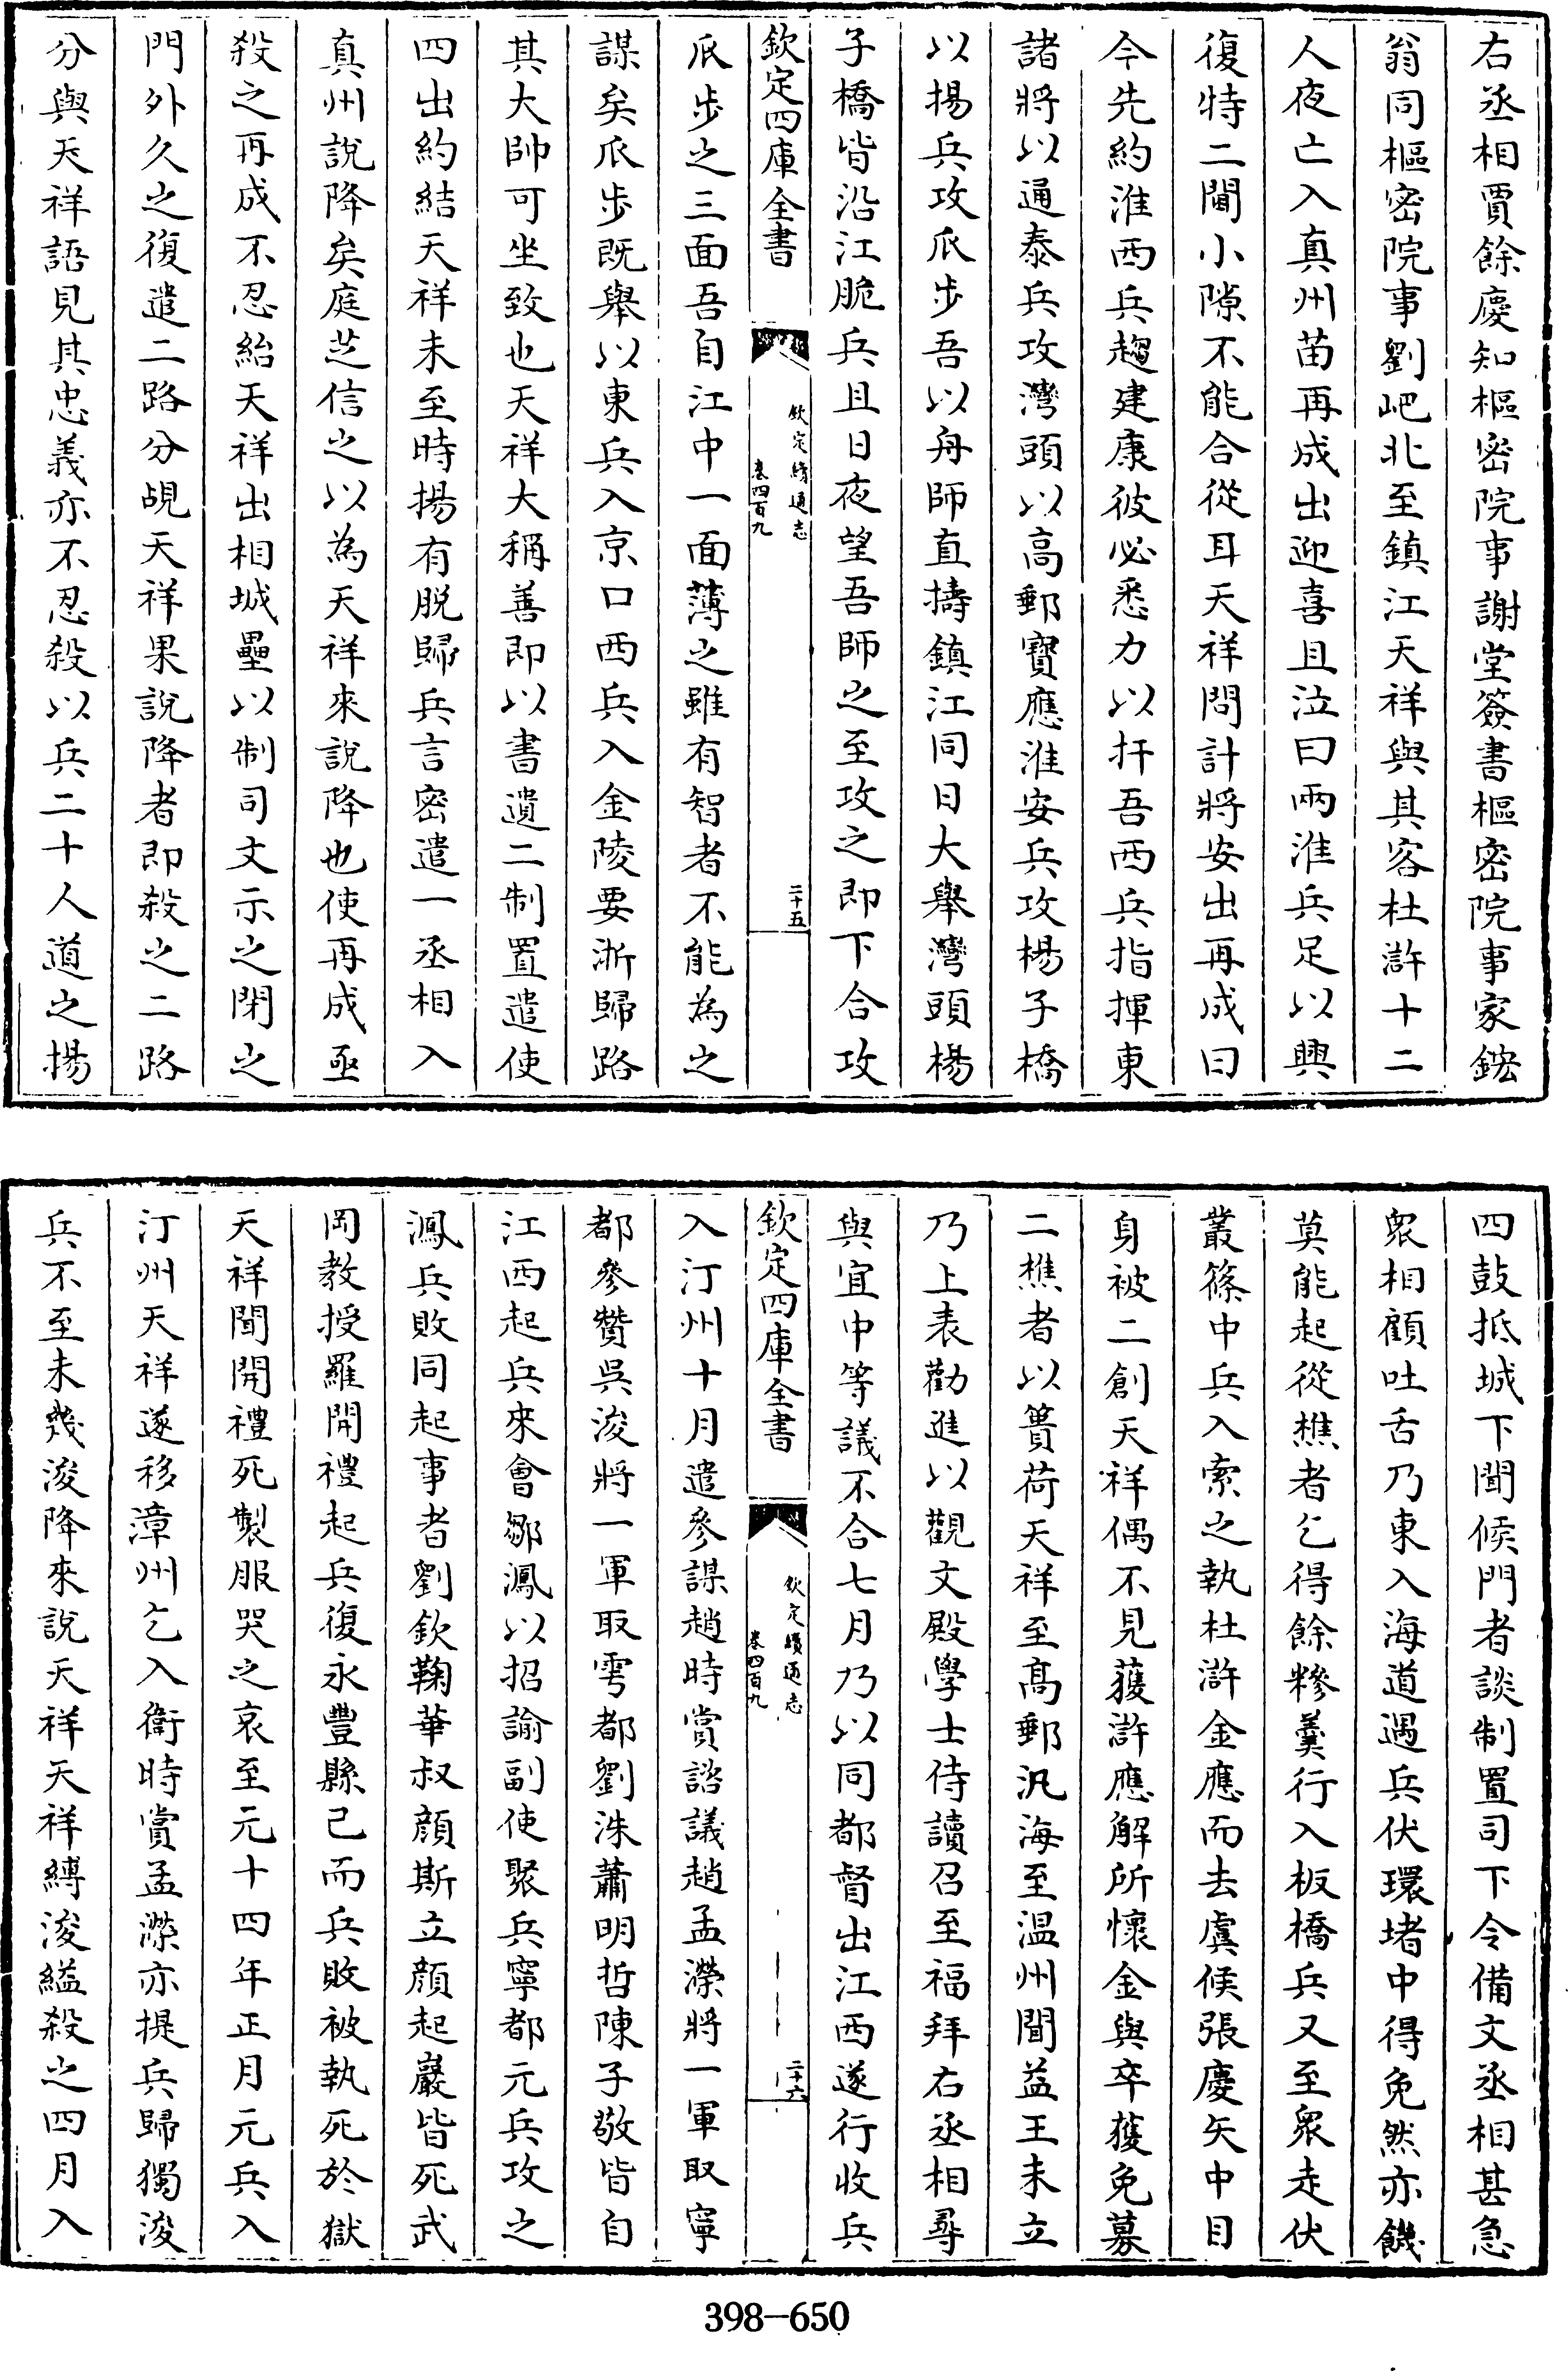 右丞相賈餘慶知樞密院事謝堂簽書樞密院事家鉉
翁同樞密院事劉岊北至鎮江天祥與其客杜滸十二
人夜亡入真州苗再成出迎喜且泣曰兩淮兵足以興
復特二閫小隙不能合從耳天祥問計將安出再成曰
今先約淮西兵趨建康彼必悉力以扞吾西兵指揮東
諸將以通泰兵攻灣頭以高郵寳應淮安兵攻楊子橋
以揚兵攻瓜步吾以舟師直擣鎮江同日大舉灣頭楊
子橋皆沿江脆兵且日夜望吾師之至攻之即下合攻
欽定四庫全書
欽定續通志
卷四百九
二十五
瓜步之三面吾自江中一面薄之雖有智者不能為之
謀矣瓜步既舉以東兵入京口西兵入金陵要浙歸路
其大帥可坐致也天祥大稱善即以書遺二制置遣使
四出約結天祥未至時揚有脫歸兵言密遣一丞相入
真州說降矣庭芝信之以為天祥來說降也使再成亟
殺之再成不忍紿天祥出相城壘以制司文示之閉之
門外久之復遣二路分覘天祥果說降者即殺之二路
分與天祥語見其忠義亦不忍殺以兵二十人道之揚
四鼓抵城下聞候門者談制置司下令備文丞相甚急
衆相顧吐舌乃東入海道遇兵伏環堵中得免然亦饑
莫能起從樵者乞得餘糝羹行入板橋兵又至衆走伏
叢篠中兵入索之執杜滸金應而去虞候張慶矢中目
身被二創天祥偶不見獲滸應解所懷金與卒獲免募
二樵者以簣荷天祥至高郵汎海至温州聞益王未立
乃上表勸進以觀文殿學士侍讀召至福拜右丞相尋
與宜中等議不合七月乃以同都督出江西遂行收兵
欽定四庫全書
欽定續通志
卷四百九
二十六
入汀州十月遣參謀趙時賞諮議趙孟濼將一軍取寧
都參贊吳浚將一軍取雩都劉洙蕭明哲陳子敬皆自
江西起兵來會鄒㵯以招諭副使聚兵寧都元兵攻之
㵯兵敗同起事者劉欽鞠華叔顏斯立顏起巖皆死武
岡教授羅開禮起兵復永豐縣已而兵敗被執死於獄
天祥聞開禮死製服哭之哀至元十四年正月元兵入
汀州天祥遂移漳州乞入衛時賞孟濼亦提兵歸獨浚
兵不至未幾浚降來說天祥天祥縛浚縊殺之四月入
398-650